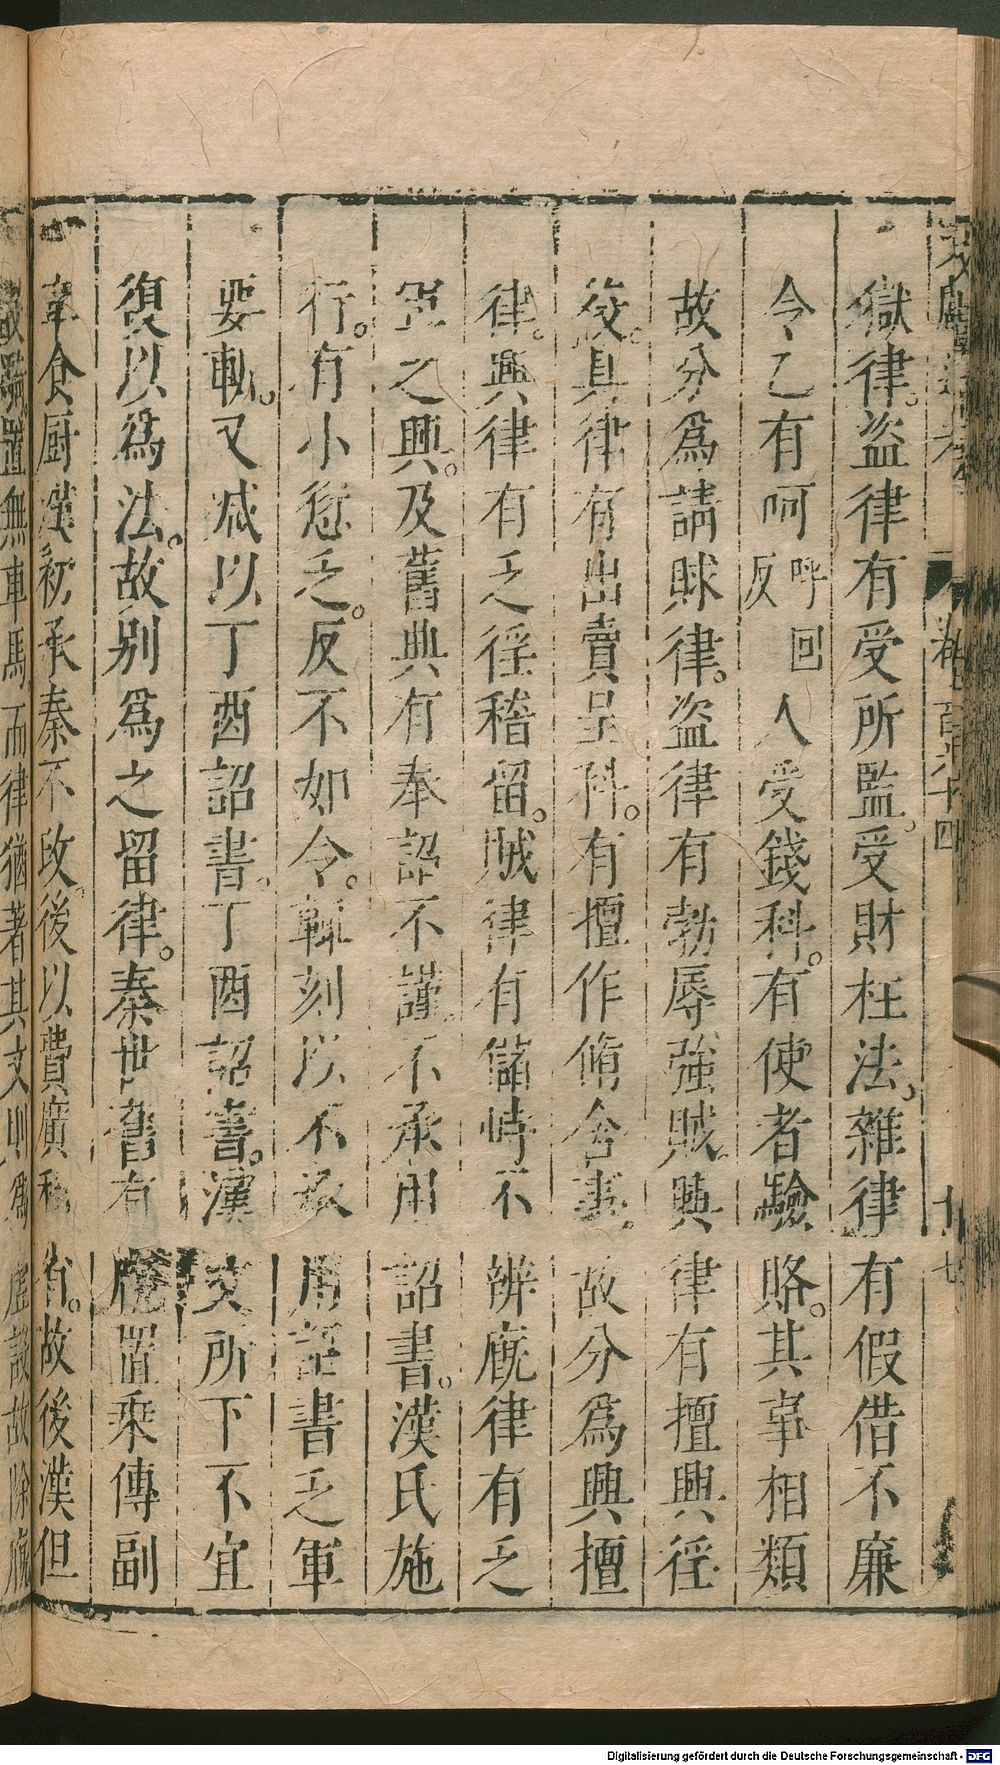 獄律。盜律有受所監。受財枉法。雜律有假借不廉
令乙有呵呼回反人受錢科。有使者驗賂。其事相類
故分爲請賕律。盜律有勃辱強賊。興律有擅興徑
役。具律有出賣呈科。有擅作脩舍事。故分爲興擅
律。興律有乏徑稽留。賊律有儲峙不辨廐律有乏
軍之興。及舊典有奉詔不謹。不承用詔書。漢氏施
行。有小愆乏。反不如令。輒刻以不承用詔書乏軍
要斬。又减以丁酉詔書。丁酉詔書。漢文所下不宜
復以爲法。故别爲之留律。秦世舊有廐置乘傳副
車食厨漢初承秦不改。後以費廣稍省。故後漢但
設騎置無車馬而律猶著其文則爲虛設故除廐
通典 卷一百六十四 十七
Digitalisierung gefördert durch die Deutsche Forschungsgemeinschaft - DFG